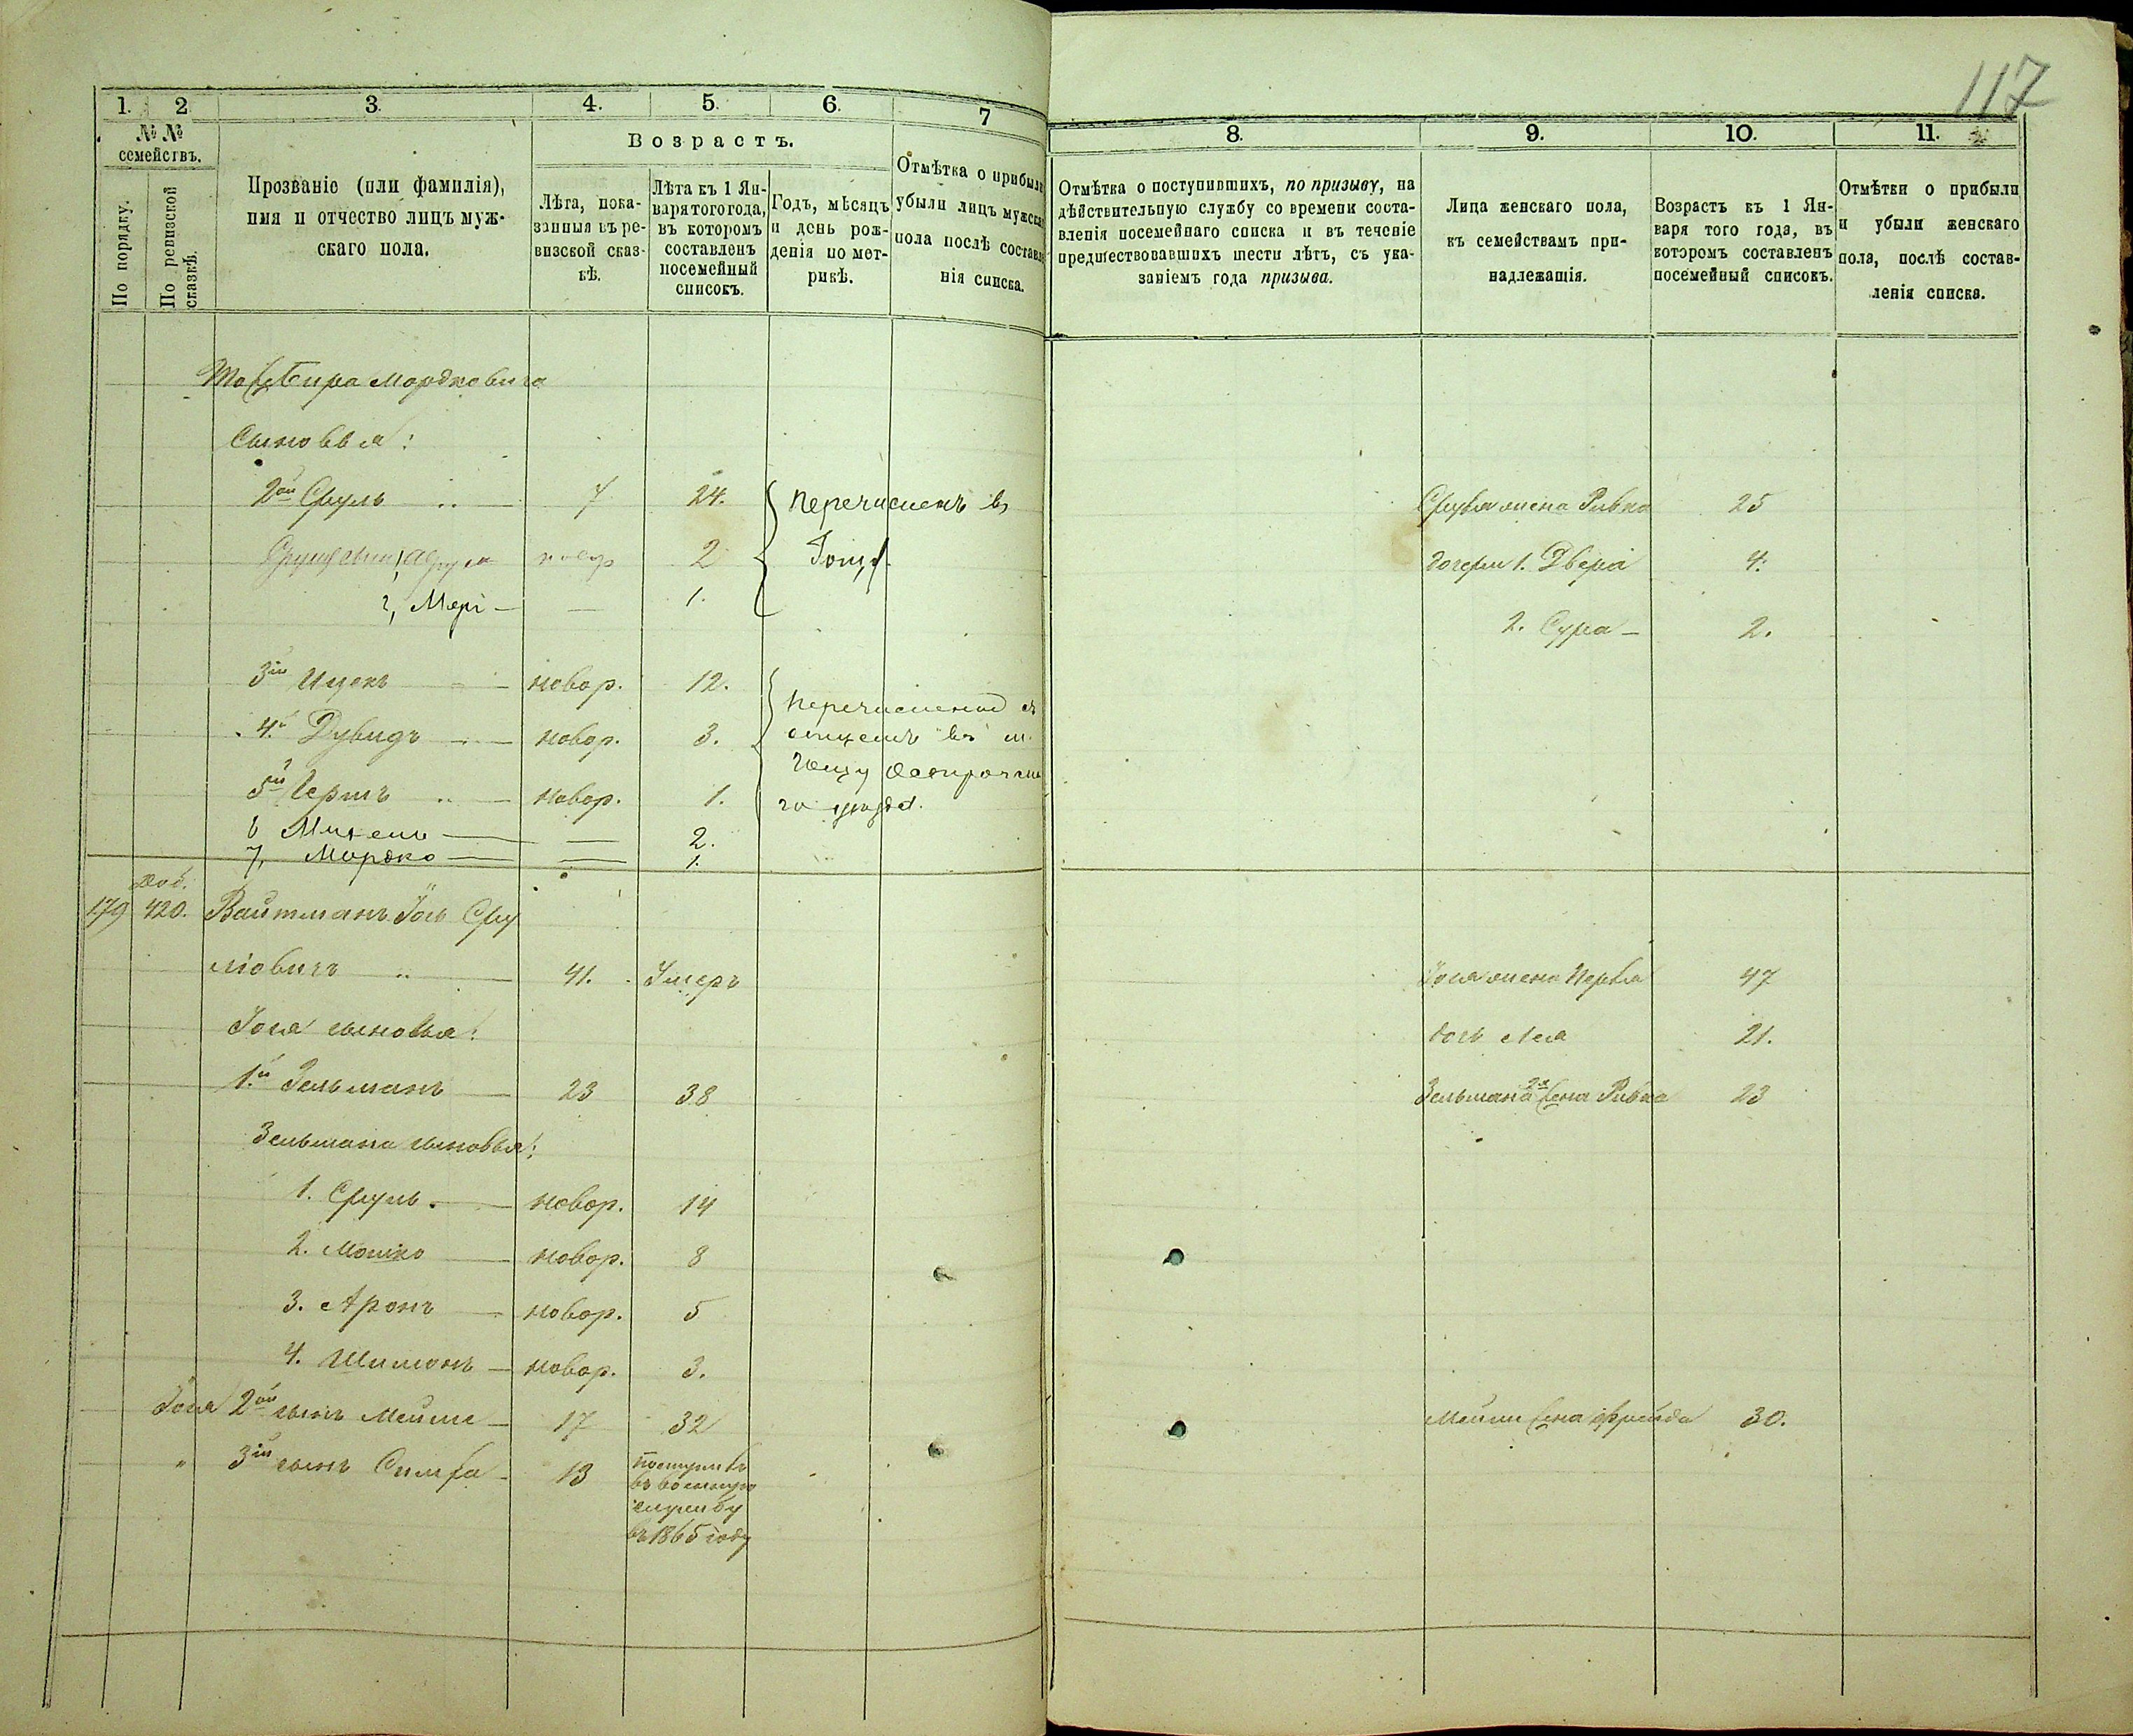 117
1. 2 3. 4. 5. 6. 7
№ № семействъ.
По порядку.
По ревизской сказкѣ.
Прозваніе (или фамилія),
имя и отчество лицъ муж-
скаго пола.
Возрастъ.
Лѣта, пока-
занныя въ ре-
визской сказ-
кѣ.
Лѣта къ 1 Ян-
варя того года,
въ которомъ
составленъ
посемейный
списокъ.
Годъ, мѣсяцъ
и день рож-
денія по мет-
рикѣ.
Отмѣтка о прибыли
убыли лицъ мужска
пола послѣ составле
нія списка.
8. 9. 10. 11.
Отмѣтка о поступившихъ, по призыву, на
дѣйствительную службу со времени соста-
вленія посемейнаго списка и въ теченіе
предшествовавшихъ шести лѣтъ, съ ука-
заніемъ года призыва.
Лица женскаго пола,
къ семействамъ при-
надлежащія.
Возрастъ къ 1 Ян-
варя того года, въ
которомъ составленъ
посемейный списокъ.
Отмѣтки о прибыли
и убыли женскаго
пола, послѣ состав-
ленія списка.
Мордковича
Сыновья:
2ой Сруль 7 24. перечисленъ въ
Сруля жена Ривка 25
2
дочери 1. Двера 4.
2, 1.
2. Сура 2.
3ій Ицекъ новор. 12. перечислены съ
4й Дувидъ новор. 3. отцемъ въ м.
5й Гершъ новор. 1.
6 2.
7, Мордко 1.
Доб.
179 420. Вайтманъ Іось Сру
ліовичъ 41. Умеръ
Іося жена Перля 47
Іося сыновья:
дочь Лея 21.
1й Зельманъ 23 38
Зельмана 2я жена Ривка 23
Зельмана сыновья:
1. Сруль новор. 14
2. Мошко новор. 8
3. Аронъ новор. 5
4. Шимонъ новор. 3.
Іося 2ой сынъ Мейше 17 32
Мейши жена Фрейда 30.
" 3ій сынъ Симха 13 поступилъ
въ военную
службу
въ 1865 году